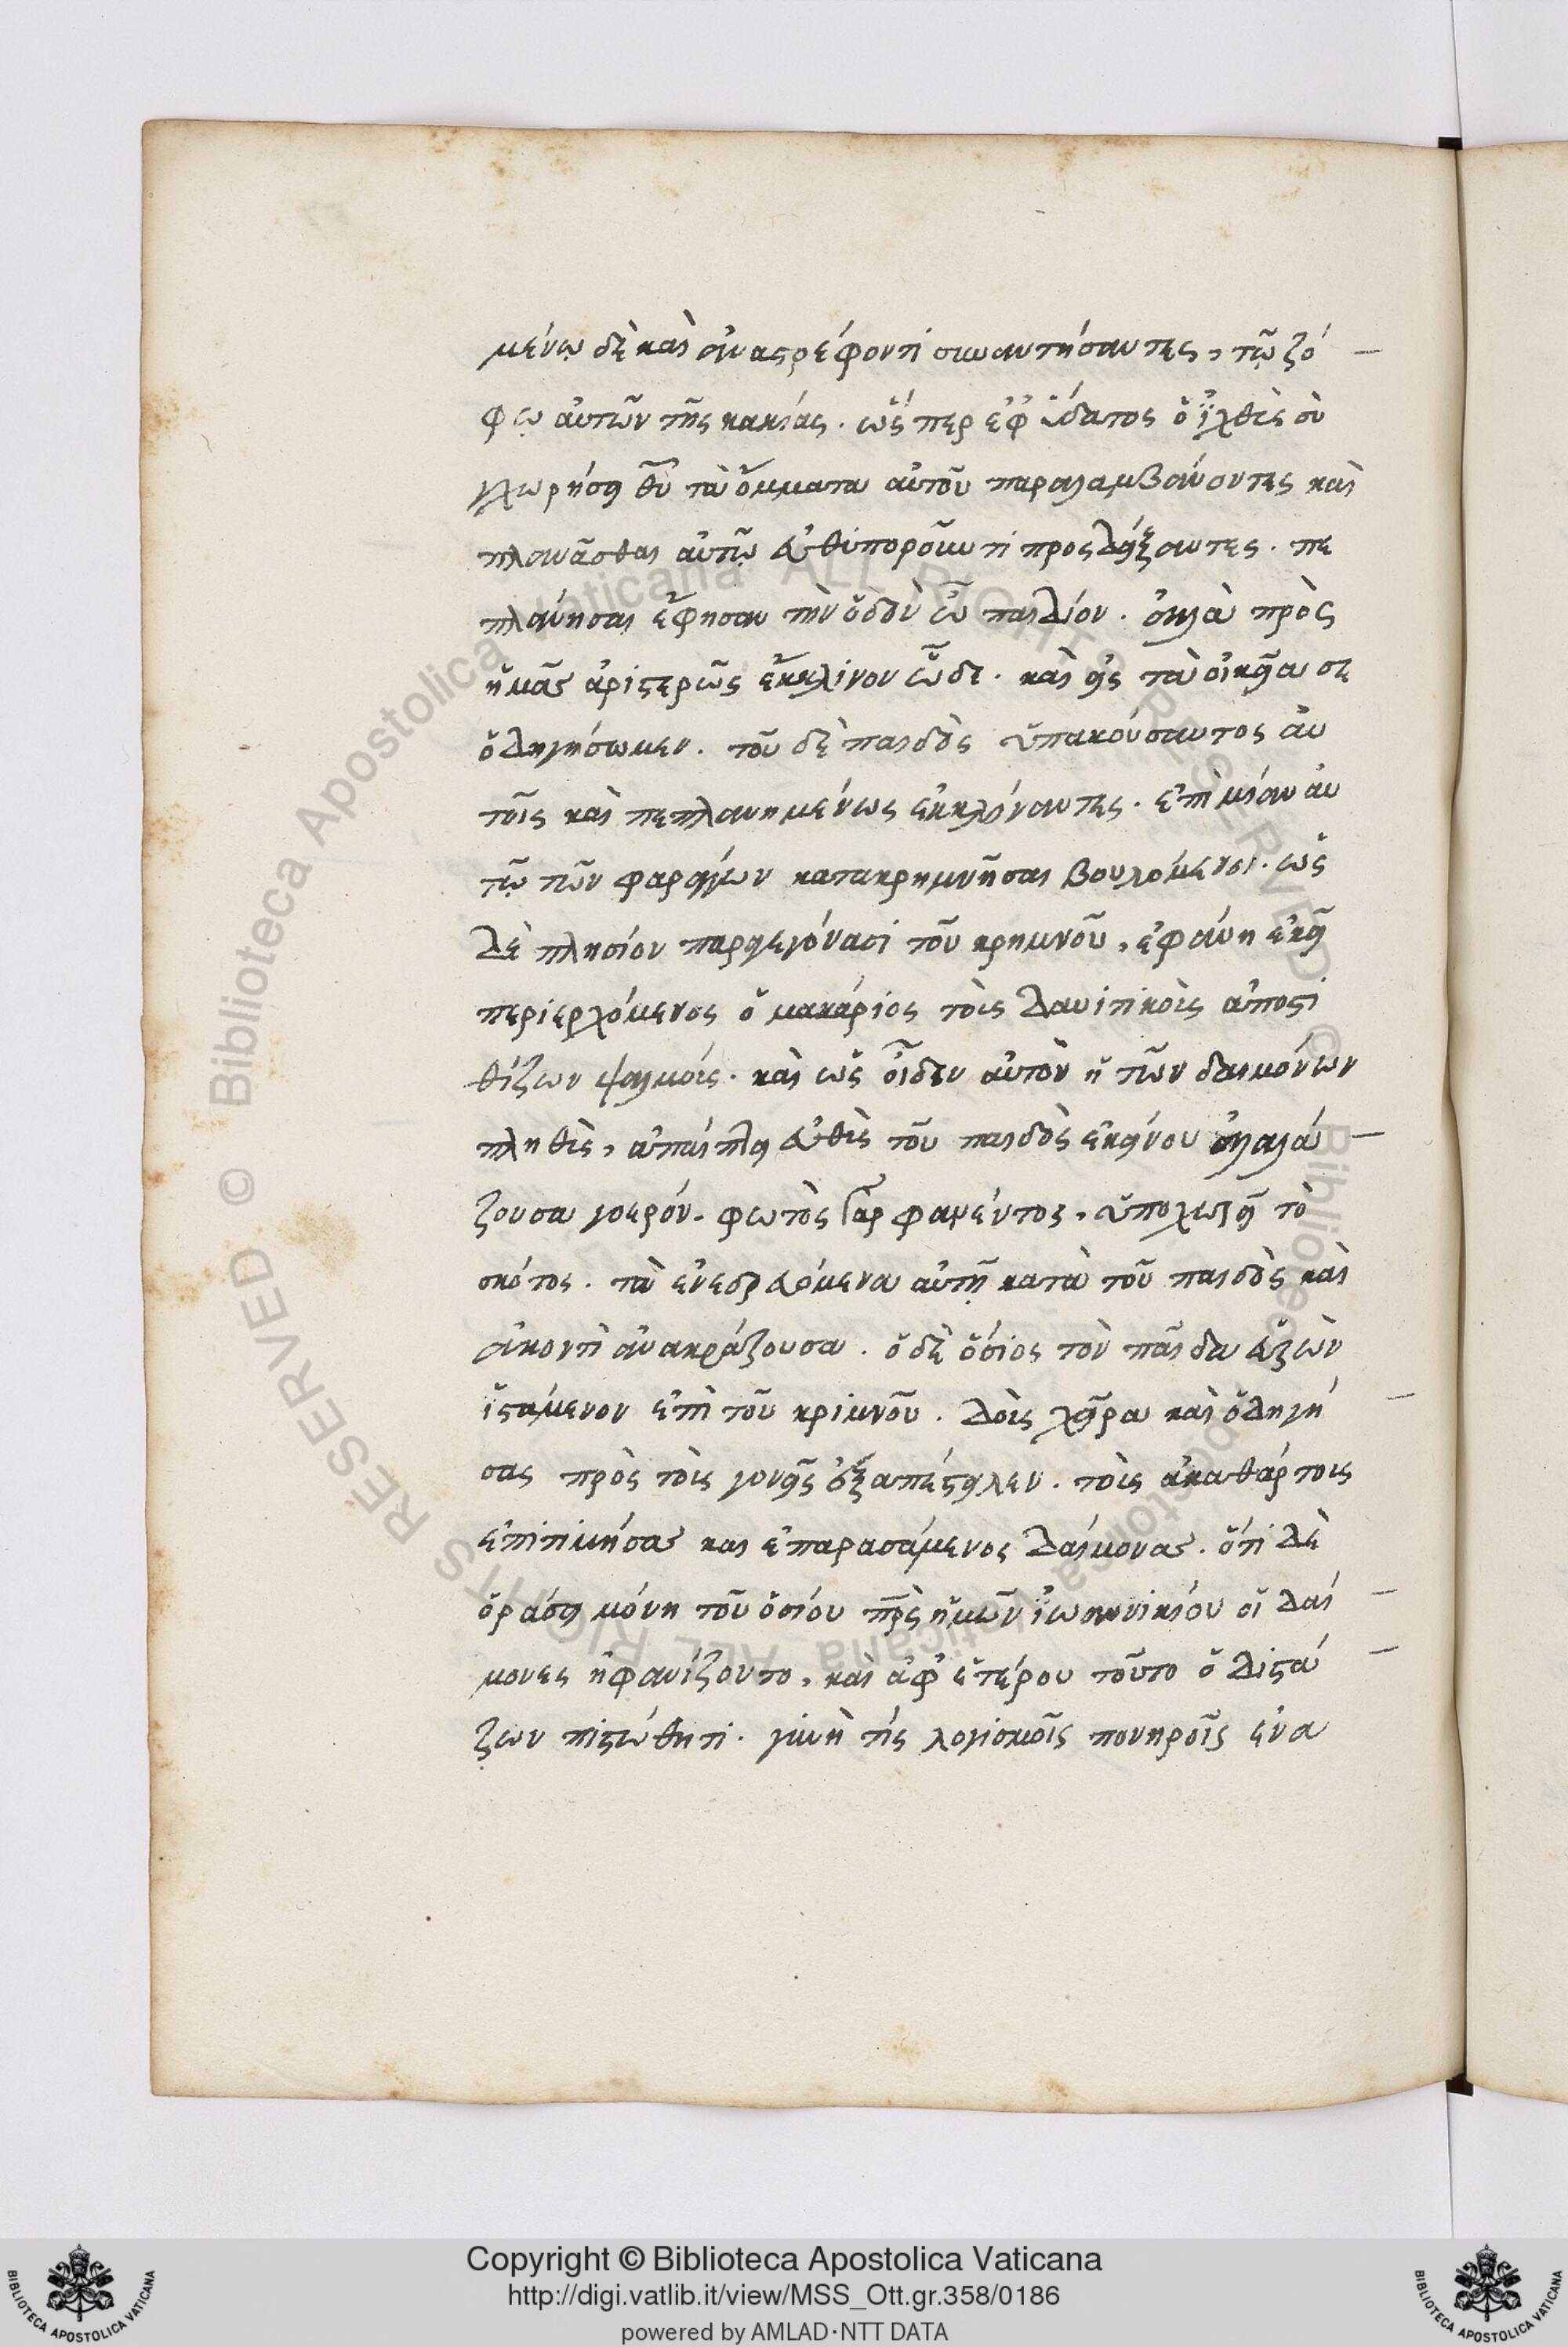 μένῳ δὲ καὶ ἀναστρέφοντι συναντήσαντες, τῷ ζό
φῳ αὐτῶν τῆς κακίας. ὥσπερ ἐφ ὕδατος ὁ ἰχθὺς συ
γχωρήσει θῦ τὰ ὄμματα αὐτοῦ παραλαμβάνοντες καὶ
πλανᾶσθαι αὐτῷ εὐθυποροῦντι προσδείξαντες. πε
πλάνησαι ἔφησαν τὴν ὁδὸν ὦ παιδίον. ἀλλὰ πρὸς
ἡμᾶς ἀριστερῶς ἔκκλινον ὧδε. καὶ εἰς τὰ οἰκεῖα σε
ὁδηγήσωμεν. τοῦ δὲ παιδὸς ὑπακούσαντος αὐ
τοῖς καὶ πεπλανημένως ἐκκλίναντες. ἐπὶ μίαν αὐ
τῷ τῶν φαράγγων κατακρημνῆσαι βουλόμενοι. ὡς
δὲ πλησίον παραγεγόνασι τοῦ κρημνοῦ, ἐφάνη ἐκεῖ
περιερχόμενος ὁ μακάριος τοῖς δαυιτικοῖς ἀποστι
θίζων ψαλμοῖς. καὶ ὡς οἶδεν αὐτὸν ἡ τῶν δαιμόνων
πληθὺς, ἀπέπτη εὐθὺς τοῦ παιδὸς ἐκείνου ἀλαλά
ζουσα γοερόν. φωτὸς γὰρ φανέντος, ὑποχωρεῖ τὸ
σκότος. τὰ ἐνεδρευόμενα αὐτῇ κατὰ τοῦ παιδὸς καὶ
ἀκοντὶ ἀνακράζουσα. ὁ δὲ ὅσιος τὸν παῖδα εὑρὼν
ἱστάμενον ἐπὶ τοῦ κριμνοῦ. δοὺς χεῖρα καὶ ὁδηγή
σας πρὸς τοὺς γονεῖς ἐξαπέστειλεν. τοῖς ἀκαθάρτοις
ἐπιτιμήσας και ἐπαρασάμενος δαίμονας. ὅτι δὲ
ὁράσει μόνη τοῦ ὁσίου πρς ἡμῶν ἰωαννικίου οἱ δαί
μονες ἠφανίζοντο, καὶ ἀφ ἑτέρου τοῦτο ὁ διστά
ζων πιστώθητι. γυνὴ τίς λογισμοῖς πονηροῖς ἐνα